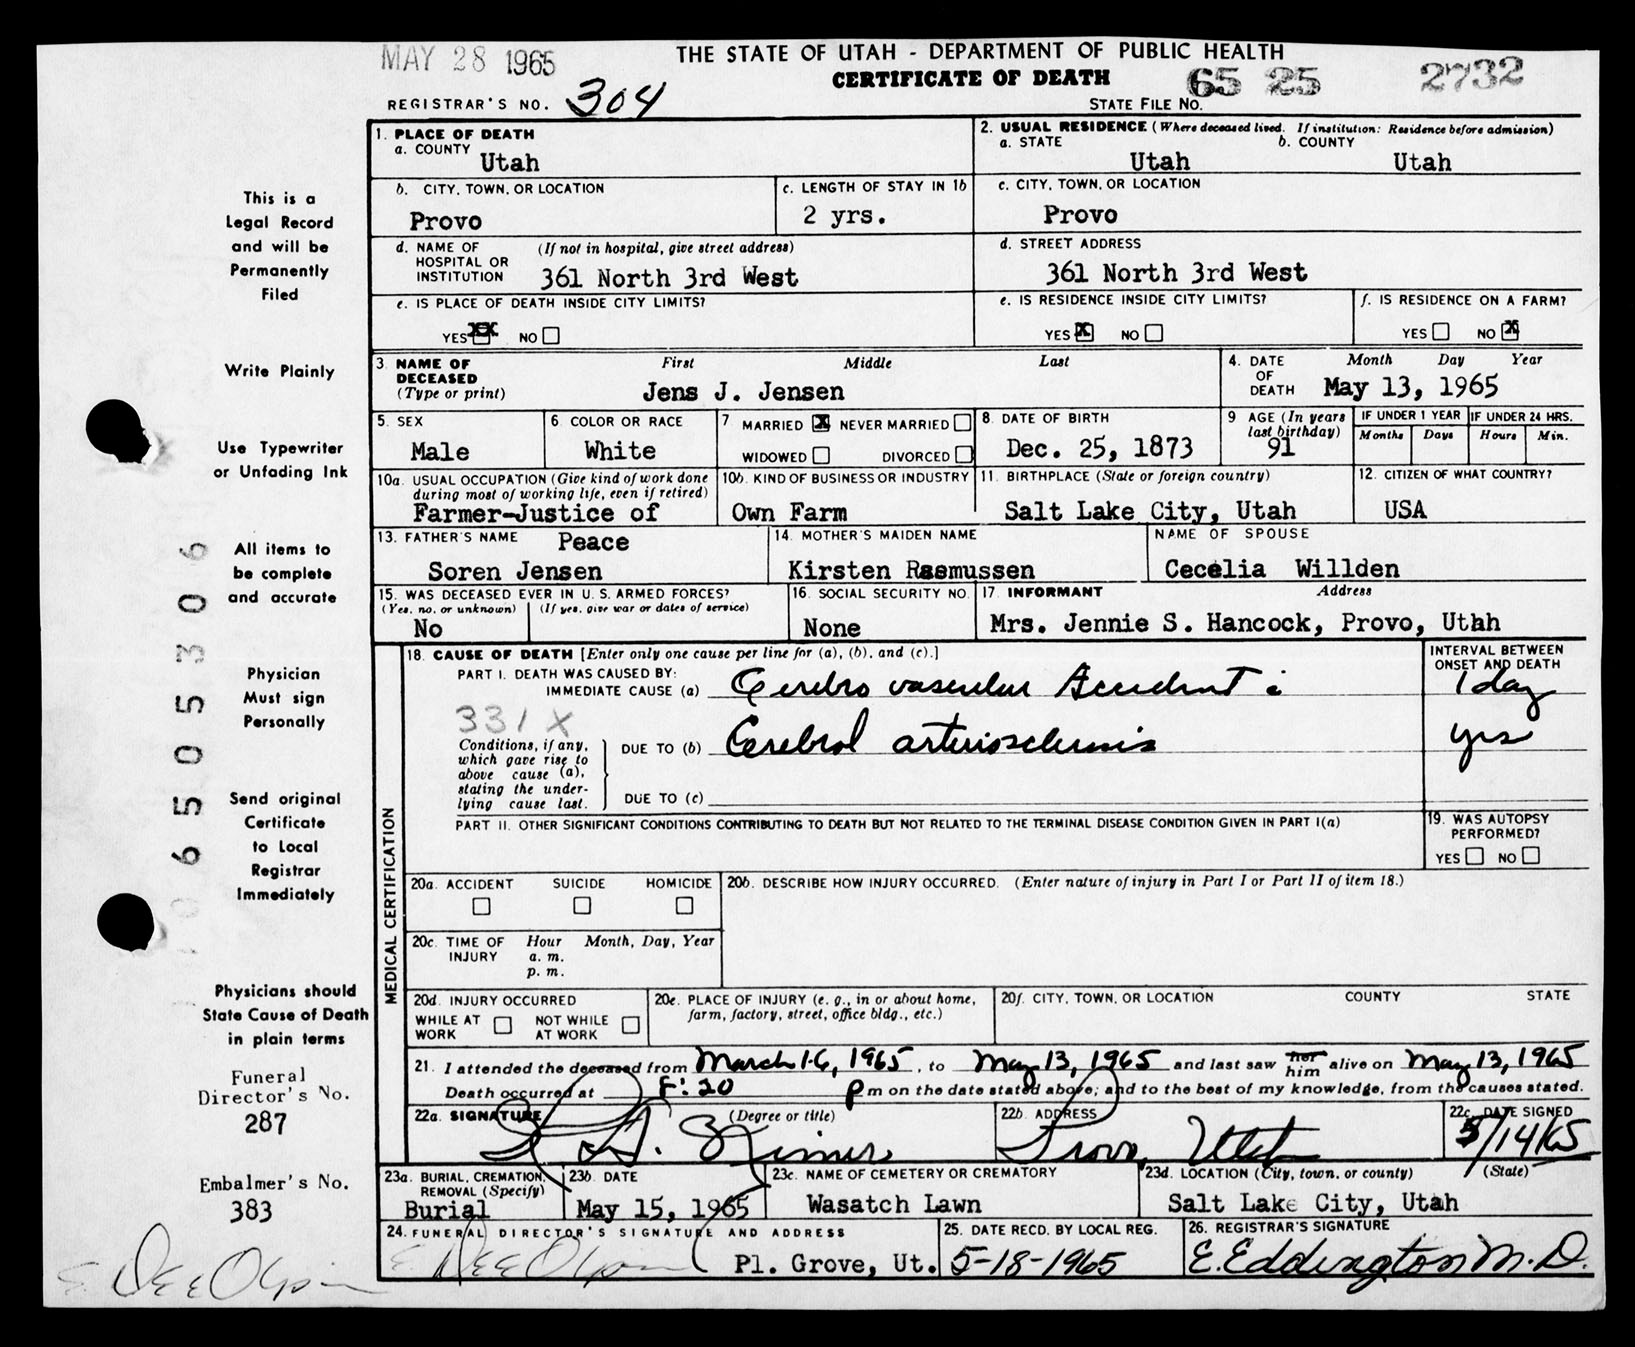 MAY 28 1965
THE STATE OF UTAH - DEPARTMENT OF PUBLIC HEALTH
CERTIFICATE OF DEATH
65 25 2732
REGISTRAR'S NO. 304
STATE FILE NO.
1. PLACE OF DEATH
a. COUNTY
Utah
2. USUAL RESIDENCE (Where deceased lived. If institution: Residence before admission)
a. STATE b. COUNTY
Utah Utah
b. CITY, TOWN, OR LOCATION
Provo
c. LENGTH OF STAY IN 1b
2 yrs.
c. CITY, TOWN, OR LOCATION
Provo
d. NAME OF HOSPITAL OR INSTITUTION (If not in hospital, give street address)
361 North 3rd West
d. STREET ADDRESS
361 North 3rd West
e. IS PLACE OF DEATH INSIDE CITY LIMITS?
YES XX NO
e. IS RESIDENCE INSIDE CITY LIMITS?
YES X NO
f. IS RESIDENCE ON A FARM?
YES NO X
3. NAME OF DECEASED (Type or print)
First Middle Last
Jens J. Jensen
4. DATE OF DEATH
Month Day Year
May 13, 1965
5. SEX
Male
6. COLOR OR RACE
White
7 MARRIED X NEVER MARRIED
WIDOWED DIVORCED
8. DATE OF BIRTH
Dec. 25, 1873
9 AGE (In years last birthday)
91
IF UNDER 1 YEAR IF UNDER 24 HRS.
Months Days Hours Min.
10a. USUAL OCCUPATION (Give kind of work done during most of working life, even if retired)
Farmer-Justice of
Peace
10b. KIND OF BUSINESS OR INDUSTRY
Own Farm
11. BIRTHPLACE (State or foreign country)
Salt Lake City, Utah
12. CITIZEN OF WHAT COUNTRY?
USA
13. FATHER'S NAME
Soren Jensen
14. MOTHER'S MAIDEN NAME
Kirsten Rasmussen
NAME OF SPOUSE
Cecelia Willden
15. WAS DECEASED EVER IN U.S. ARMED FORCES?
(Yes, no, or unknown) (If yes, give war or dates of service)
No
16. SOCIAL SECURITY NO.
None
17. INFORMANT Address
Mrs. Jennie S. Hancock, Provo, Utah
MEDICAL CERTIFICATION
18. CAUSE OF DEATH [Enter only one cause per line for (a), (b), and (c).]
INTERVAL BETWEEN ONSET AND DEATH
PART I. DEATH WAS CAUSED BY:
IMMEDIATE CAUSE (a) Cerebro vascular Accident 1 day
331X
Conditions, if any, which gave rise to above cause (a), stating the underlying cause last.
DUE TO (b) Cerebral arteriosclerosis yrs
DUE TO (c)
PART II. OTHER SIGNIFICANT CONDITIONS CONTRIBUTING TO DEATH BUT NOT RELATED TO THE TERMINAL DISEASE CONDITION GIVEN IN PART I(a)
19. WAS AUTOPSY PERFORMED?
YES NO
20a. ACCIDENT SUICIDE HOMICIDE
20b. DESCRIBE HOW INJURY OCCURRED. (Enter nature of injury in Part I or Part II of item 18.)
20c. TIME OF INJURY Hour Month, Day, Year
a. m.
p. m.
20d. INJURY OCCURRED
WHILE AT WORK NOT WHILE AT WORK
20e. PLACE OF INJURY (e. g., in or about home, farm, factory, street, office bldg., etc.)
20f. CITY, TOWN, OR LOCATION COUNTY STATE
21. I attended the deceased from March 16, 1965, to May 13, 1965 and last saw her him alive on May 13, 1965
Death occurred at 8:20 p m on the date stated above; and to the best of my knowledge, from the causes stated.
22a. SIGNATURE (Degree or title)
22b. ADDRESS
Provo, Utah
22c. DATE SIGNED
5/14/65
23a. BURIAL, CREMATION, REMOVAL (Specify)
Burial
23b. DATE
May 15, 1965
23c. NAME OF CEMETERY OR CREMATORY
Wasatch Lawn
23d. LOCATION (City, town, or county) (State)
Salt Lake City, Utah
24. FUNERAL DIRECTOR'S SIGNATURE AND ADDRESS
E. Dee Olpin Pl. Grove, Ut.
25. DATE RECD. BY LOCAL REG.
5-18-1965
26. REGISTRAR'S SIGNATURE
E. Eddington M.D.
This is a
Legal Record
and will be
Permanently
Filed
Write Plainly
Use Typewriter
or Unfading Ink
All items to
be complete
and accurate
Physician
Must sign
Personally
Send original
Certificate
to Local
Registrar
Immediately
Physicians should
State Cause of Death
in plain terms
Funeral
Director's No.
287
Embalmer's No.
383
E. Dee Olpin
0650530 6